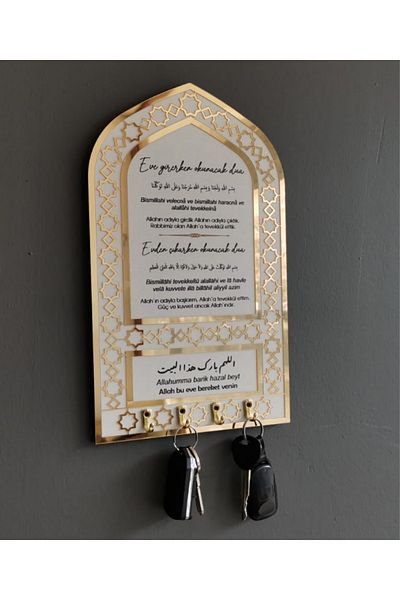 Eve girerken okunacak dua
بِسْمِ اللّٰهِ وَلَجْنَا وَبِسْمِ اللّٰهِ خَرَجْنَا وَعَلَى اللّٰهِ تَوَكَّلْنَا
Bismillahi velecnâ ve bismillahi haracnâ ve
alallâhi tevekkelnâ
Allahın adıyla girdik Allahın adıyla çıktık.
Rabbimiz olan Allah'a tevekkül ettik.
Evden çıkarken okunacak dua
بِسْمِ اللّٰهِ تَوَكَّلْتُ عَلَى اللّٰهِ وَلَا حَوْلَ وَلَا قُوَّةَ إِلَّا بِاللّٰهِ الْعَلِيِّ الْعَظِيمِ
Bismillâhi tevekkeltü alallâhi ve lâ havle
velâ kuvvete illâ billâhil aliyyil azim
Allah'ın adıyla başlarım, Allah'a tevekkül ettim.
Güç ve kuvvet ancak Allah'ındır.
اللهم بارك هذا البيت
Allahumma barik hazal beyt
Allah bu eve bereket versin